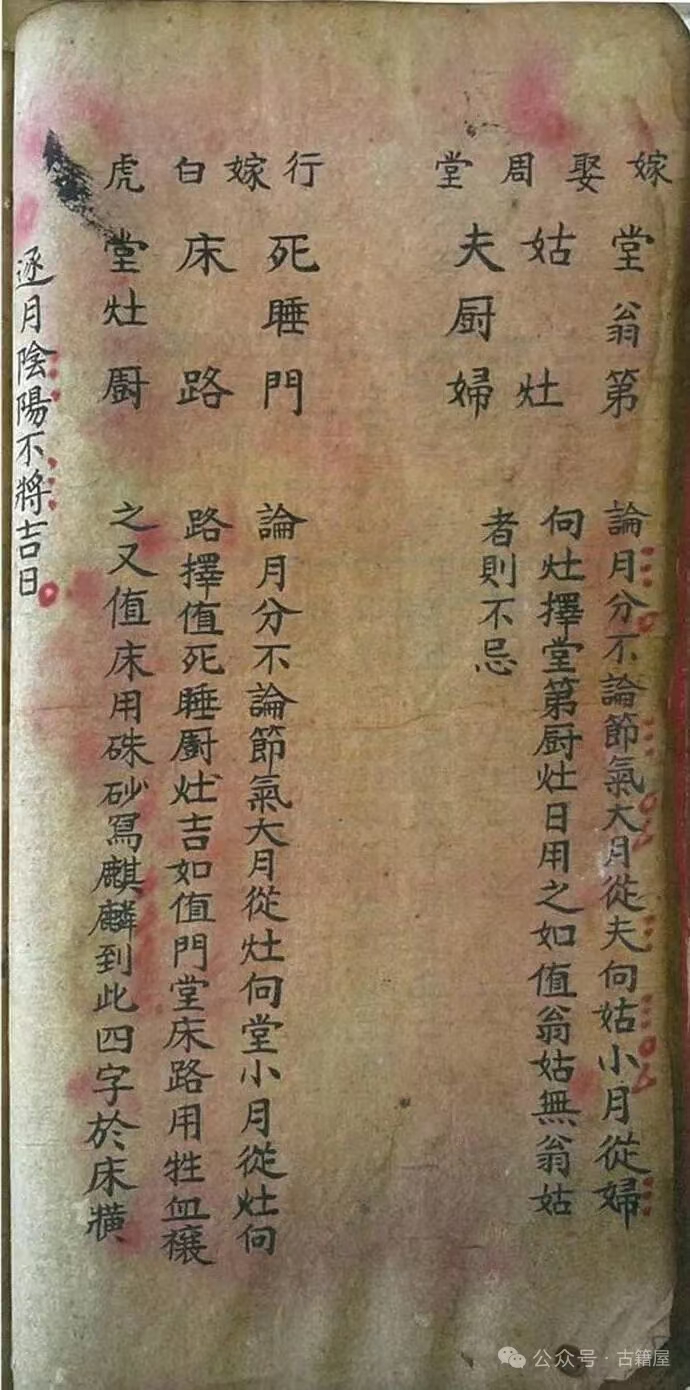 嫁娶周堂
堂翁第
姑　灶
夫厨婦
論月分不論節氣大月從夫向姑小月從婦
向灶擇堂第厨灶日用之如值翁姑無翁姑
者則不忌
行嫁白虎
死睡門
床　路
堂灶厨
論月分不論節氣大月從灶向堂小月從灶向
路擇值死睡厨灶吉如值門堂床路用牲血禳
之又值床用硃砂寫麒麟到此四字於床橫
逐月陰陽不將吉日
公众号·古籍屋